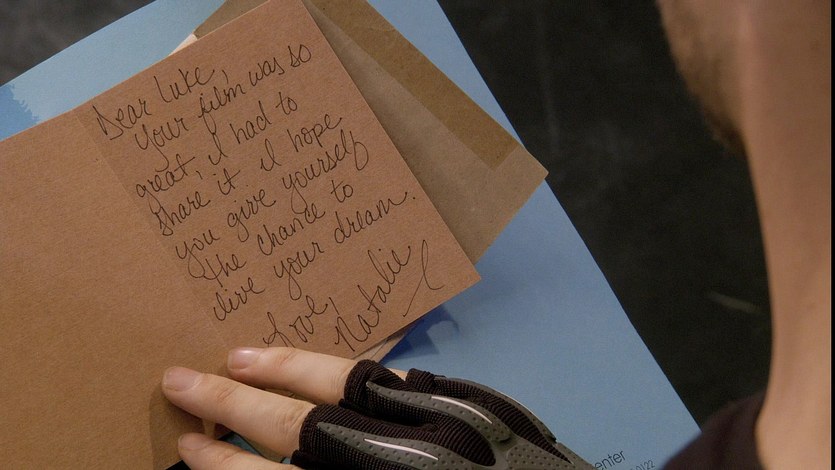 Dear Luke,
your film was so
great, I had to
share it. I hope
you give yourself
the chance to
live your dream.
Love,
Natalie
enter
0122